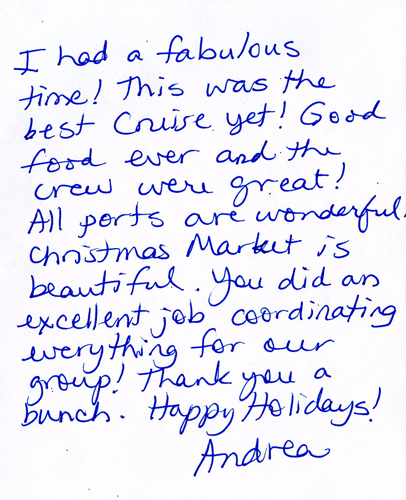 I had a fabulous
time! This was the
best Cruise yet! Good
food ever and the
crew were great!
All ports are wonderful.
Christmas Market is
beautiful. You did an
excellent job coordinating
everything for our
group! Thank you a
bunch. Happy Holidays!
Andrea